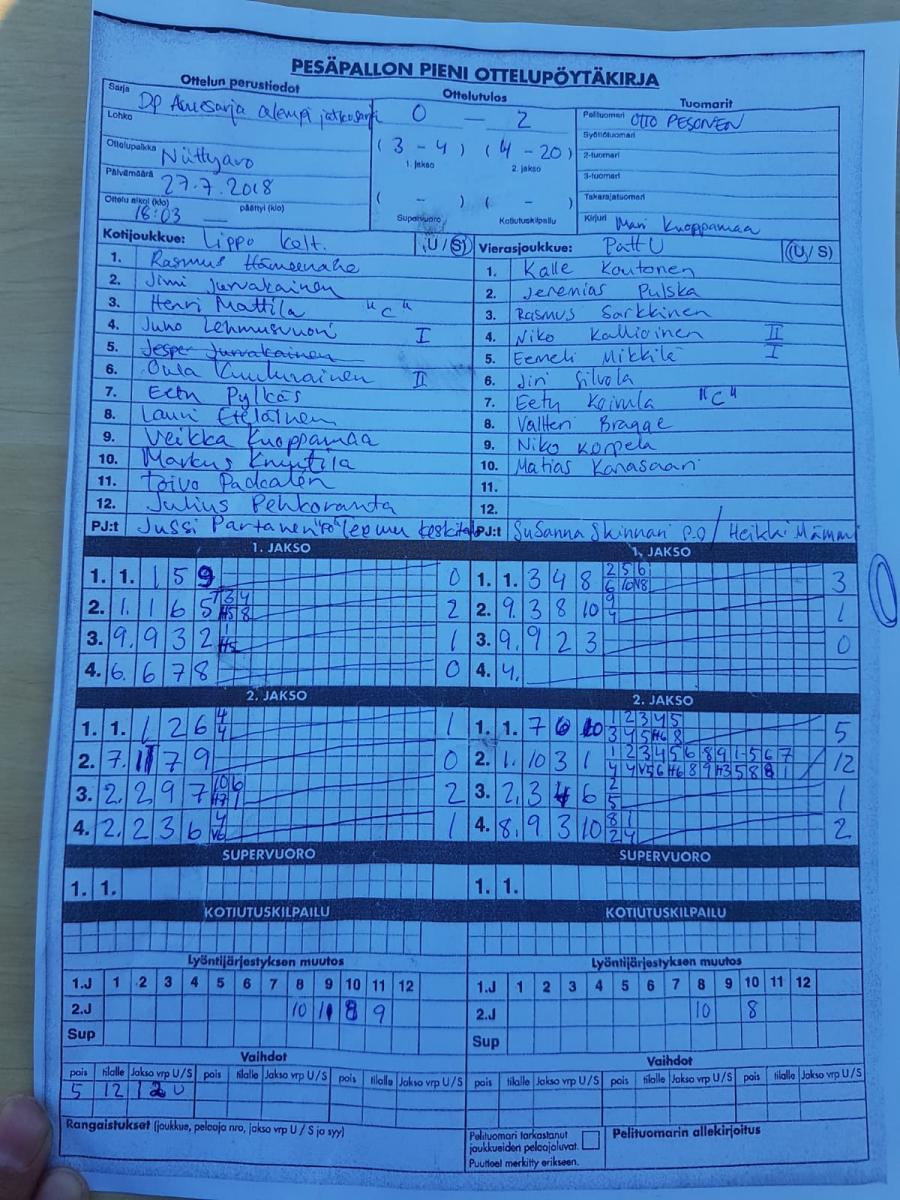 PESÄPALLON PIENI OTTELUPÖYTÄKIRJA
Ottelun perustiedot Ottelutulos Tuomarit
Sarja DP alempi jatkosarja 0 — 2 Pelituomari OTTO PESONEN
Lohko (3 - 4) (4 - 20) Syöttötuomari
1. jakso 2. jakso 2-tuomari
Ottelupaikka Niittyaro
Päivämäärä 27.7.2018 3-tuomari
( - ) ( - ) Takarajatuomari
Ottelu alkoi (klo) 18:03 päättyi (klo) Supervuoro Kotiutuskilpailu Kirjuri Mari Kuoppamaa
Kotijoukkue: Lippo kelt. (U / S) Vierasjoukkue: PattU (U / S)
1. Rasmus 1. Kalle Koutonen
2. Jimi Jurvakainen 2. Jeremias Pulska
3. Henri Mattila "C" 3. Rasmus Sarkkinen
4. Juho Lehmusvuori I 4. Niko Kallioinen II
5. Jesper Jurvakainen 5. Eemeli Mikkilä I
6. Oula II 6. Jiri Silvola
7. Eetu Pylkäs 7. Eetu Koivula "C"
8. Lauri Eteläinen 8. Valtteri Bragge
9. Veikka Kuoppamaa 9. Niko Korpela
10. Markus 10. Matias Kanasaari
11. Toivo 11.
12. Julius Pehkoranta 12.
PJ:t Jussi Partanen PJ:t Susanna Skinnari P.O / Heikki
1. JAKSO 1. JAKSO
1. 1. 1 5 9 0 1. 1. 3 4 8 2 5 6 3
6 10 V8
2. 1. 1 6 5 7 3 4 2 2. 9. 3 8 10 9 1
H5 8 4
3. 9. 9 3 2 1 1 3. 9. 9 2 3 0
H5
4. 6. 6 7 8 0 4. 4.
2. JAKSO 2. JAKSO
1. 1. 1 2 6 4 1 1. 1. 7 6 10 1 2 3 4 5 5
4 3 4 5 H6 8
2. 7. 11 7 9 0 2. 1. 10 3 1 1 2 3 4 5 6 8 9 1 5 6 7 12
4 4 V5 6 H6 8 9 H3 5 8 8 1
3. 2. 2 9 7 10 6 2 3. 2. 3 4 6 2 1
H7 1 5
4. 2. 2 3 6 4 1 4. 8. 9 3 10 8 1 2
V6 2 4
SUPERVUORO SUPERVUORO
1. 1. 1. 1.
KOTIUTUSKILPAILU KOTIUTUSKILPAILU
Lyöntijärjestyksen muutos Lyöntijärjestyksen muutos
1.J 1 2 3 4 5 6 7 8 9 10 11 12 1.J 1 2 3 4 5 6 7 8 9 10 11 12
2.J 10 11 8 9 2.J 10 8
Sup Sup
Vaihdot Vaihdot
pois tilalle Jakso vrp U/S pois tilalle Jakso vrp U/S pois tilalle Jakso vrp U/S pois tilalle Jakso vrp U/S pois tilalle Jakso vrp U/S pois tilalle Jakso vrp U/S
5 12 1 2 U
Rangaistukset (joukkue, pelaaja nro, jakso vrp U / S ja syy) Pelituomari tarkastanut Pelituomarin allekirjoitus
joukkueiden pelaajaluvat.
Puutteet merkitty erikseen.